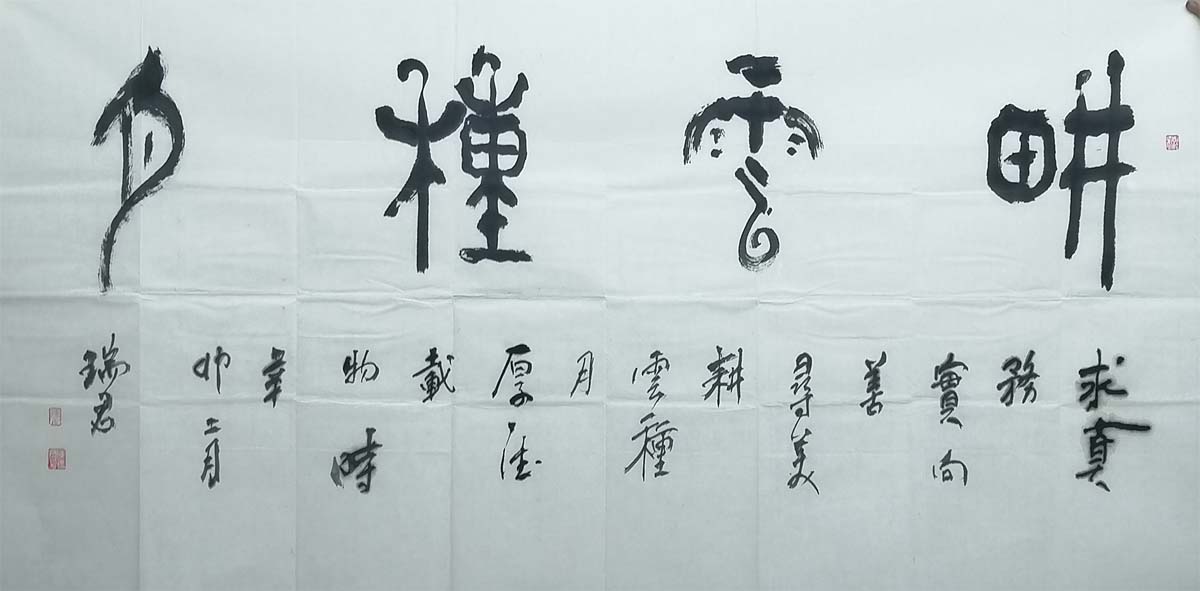 畊雲種月
求真
務
實向
善
尋美
耕
雲種
月
厚德
載
物時
辛
卯二月
瑞君